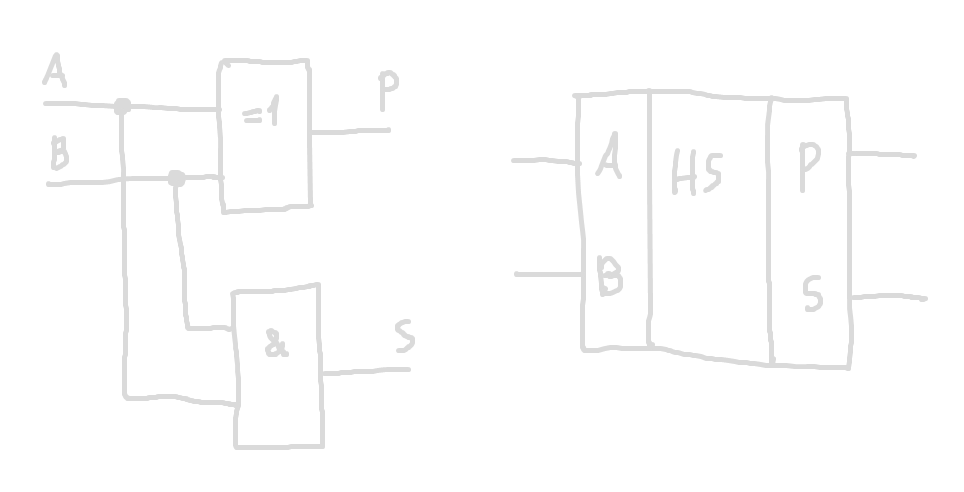 A
B
=1
P
&
S
A
B
HS
P
S